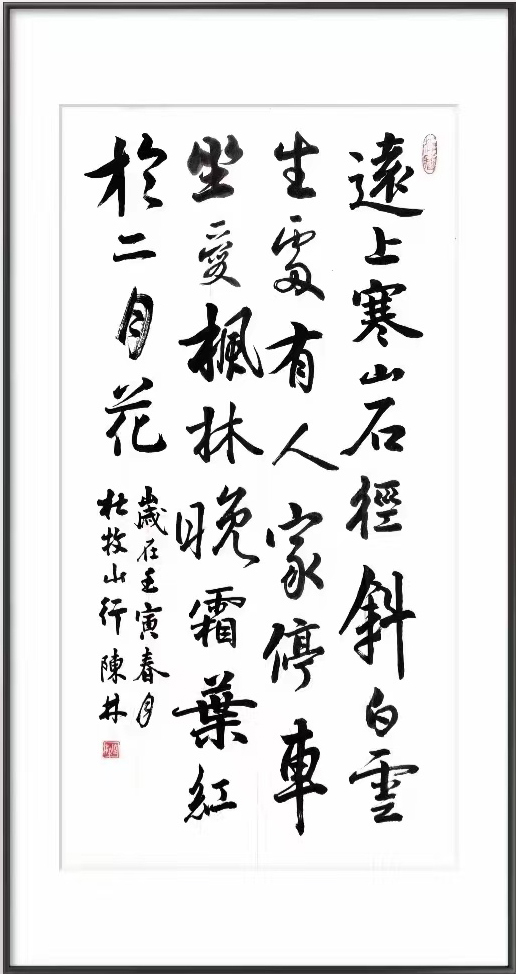 遠上寒山石徑斜白雲
生處有人家停車
坐愛楓林晚霜葉紅
於二月花
歲在壬寅春月
杜牧山行 陳林